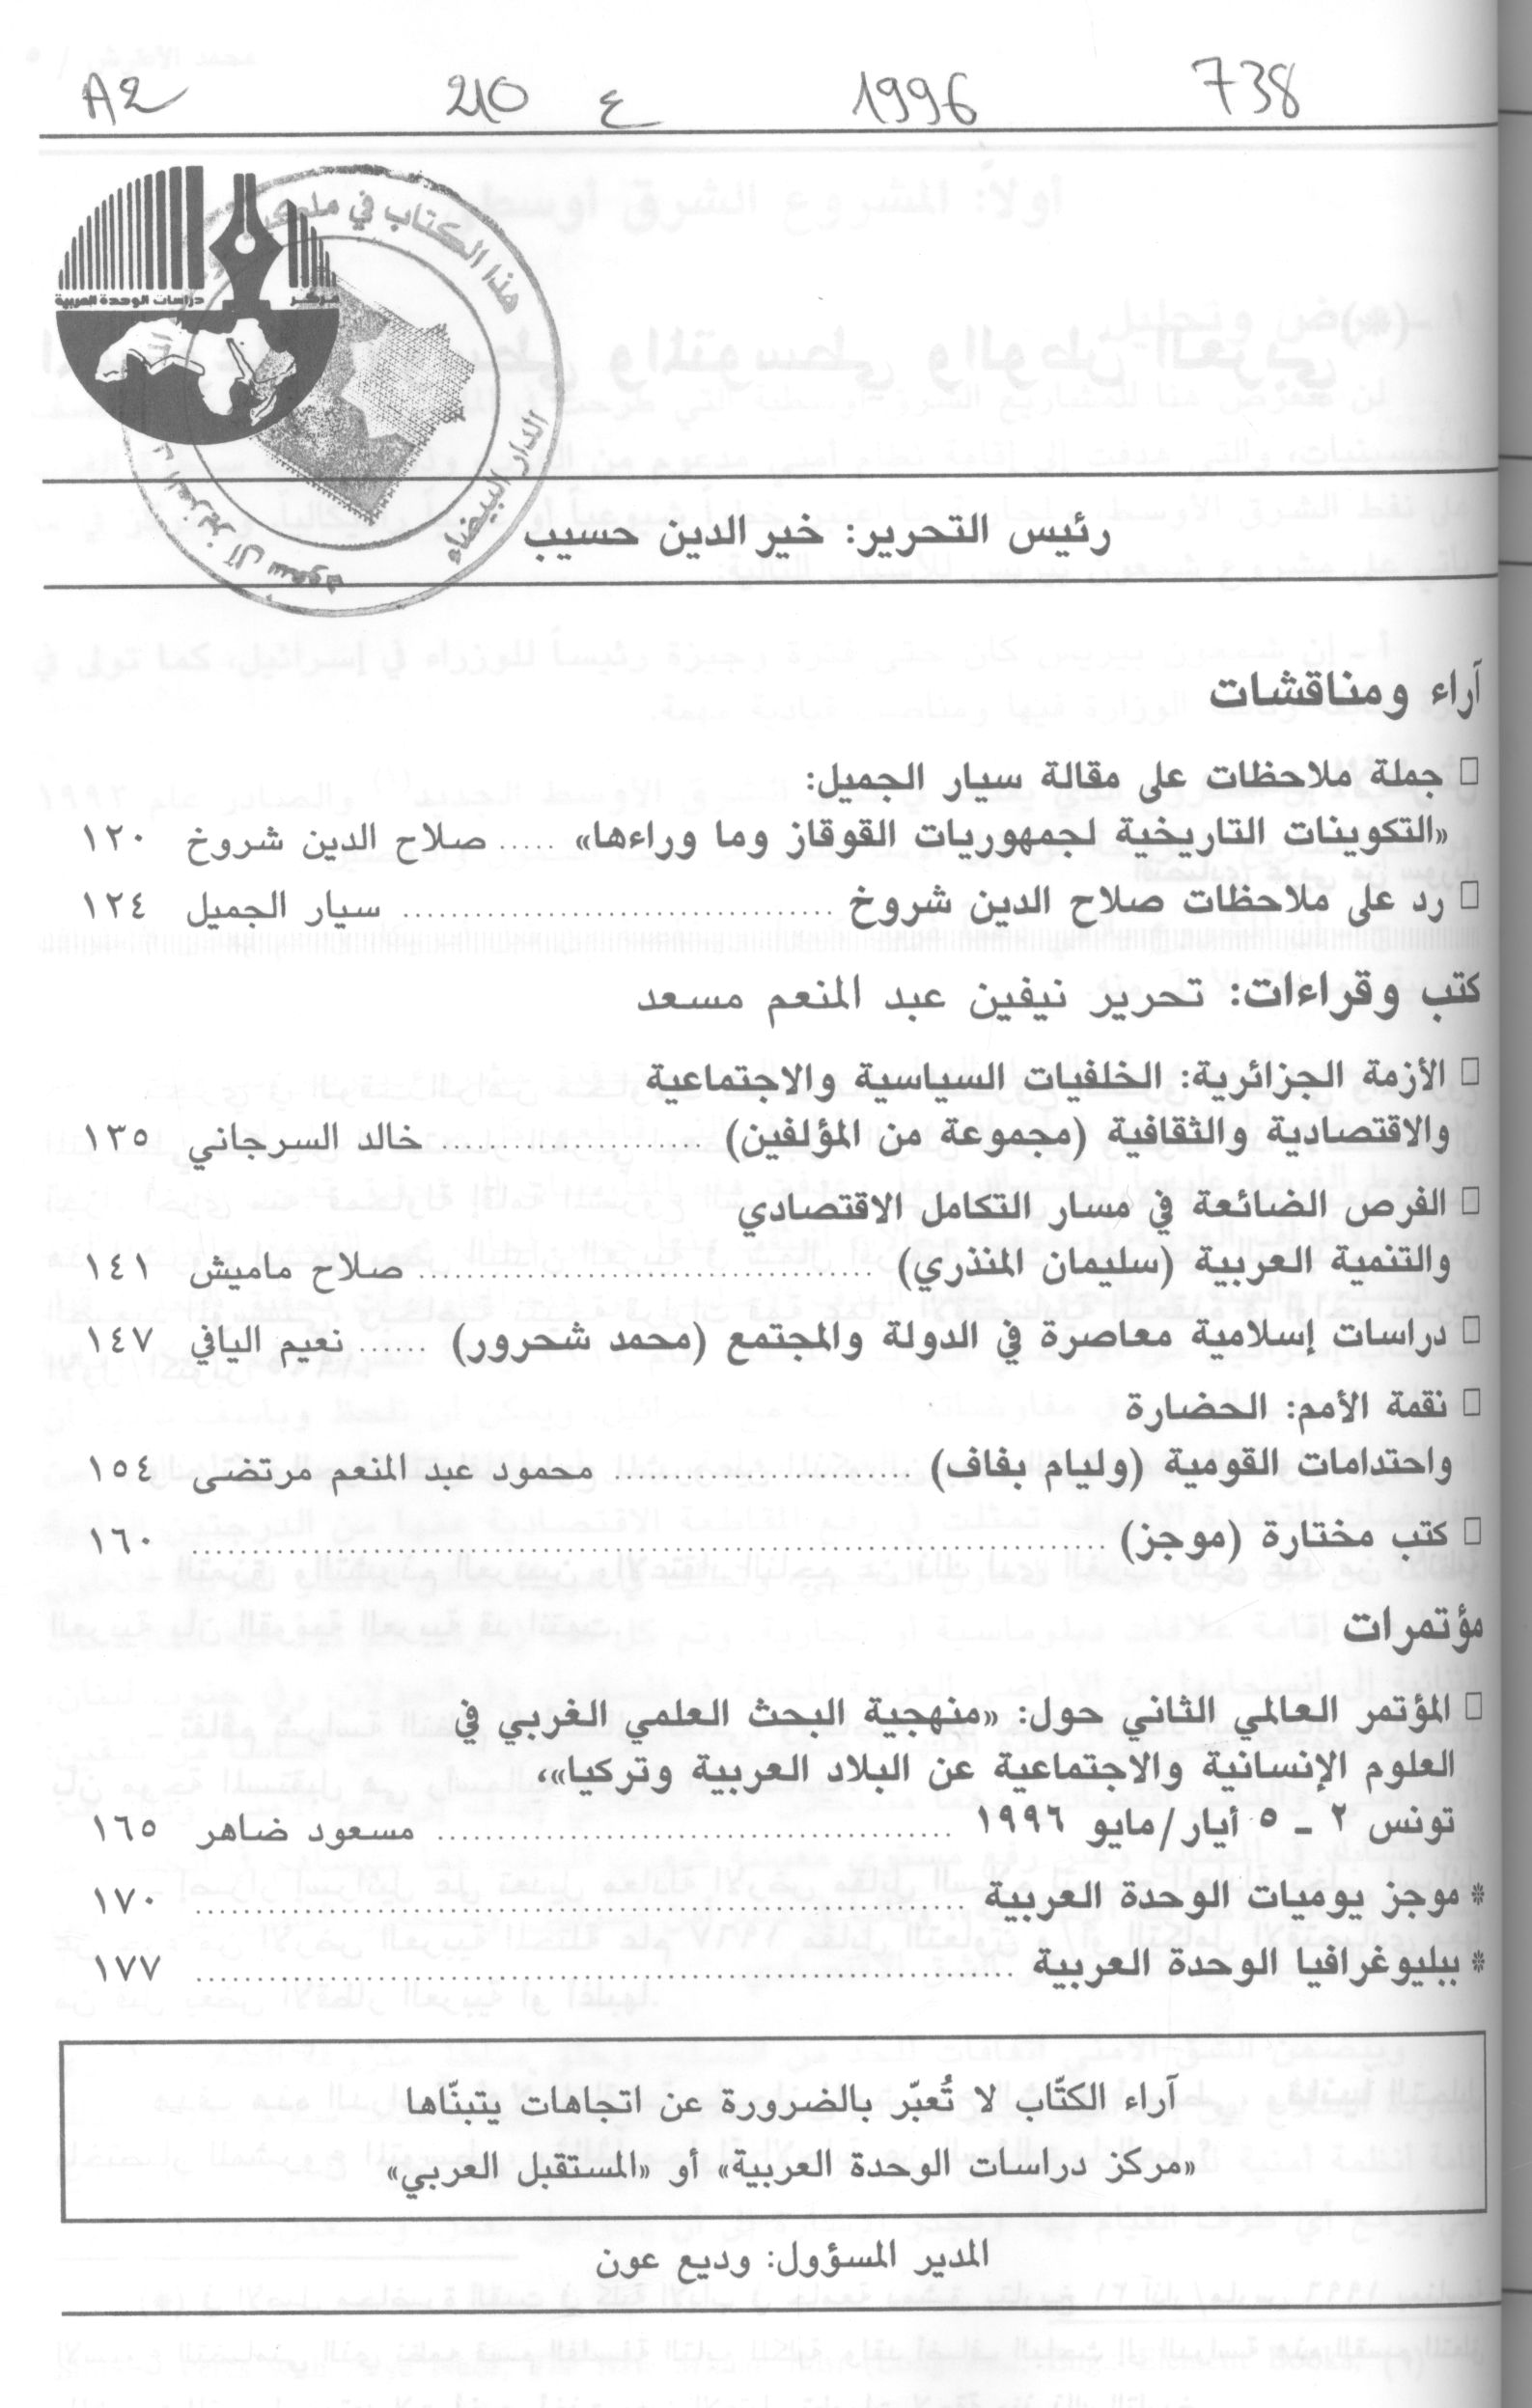 738
1996
ع 210
A2
هذا الكتاب في ملك
الدار البيضاء
آل سعود
مركز دراسات الوحدة العربية
رئيس التحرير: خير الدين حسيب
آراء ومناقشات
□ جملة ملاحظات على مقالة سيار الجميل:
«التكوينات التاريخية لجمهوريات القوقاز وما وراءها» ..... صلاح الدين شروخ ١٢٠
□ رد على ملاحظات صلاح الدين شروخ .................................... سيار الجميل ١٢٤
كتب وقراءات: تحرير نيفين عبد المنعم مسعد
□ الأزمة الجزائرية: الخلفيات السياسية والاجتماعية
والاقتصادية والثقافية (مجموعة من المؤلفين) ...................... خالد السرجاني ١٣٥
□ الفرص الضائعة في مسار التكامل الاقتصادي
والتنمية العربية (سليمان المنذري) ...................................... صلاح ماميش ١٤١
□ دراسات إسلامية معاصرة في الدولة والمجتمع (محمد شحرور) ...... نعيم اليافي ١٤٧
□ نقمة الأمم: الحضارة
واحتدامات القومية (وليام بفاف) ......................... محمود عبد المنعم مرتضى ١٥٤
□ كتب مختارة (موجز) ............................................................................ ١٦٠
مؤتمرات
□ المؤتمر العالمي الثاني حول: «منهجية البحث العلمي الغربي في
العلوم الإنسانية والاجتماعية عن البلاد العربية وتركيا»،
تونس ٢ - ٥ أيار/مايو ١٩٩٦ ........................................... مسعود ضاهر ١٦٥
* موجز يوميات الوحدة العربية ................................................................ ١٧٠
* ببليوغرافيا الوحدة العربية .................................................................... ١٧٧
آراء الكتّاب لا تُعبّر بالضرورة عن اتجاهات يتبنّاها
«مركز دراسات الوحدة العربية» أو «المستقبل العربي»
المدير المسؤول: وديع عون